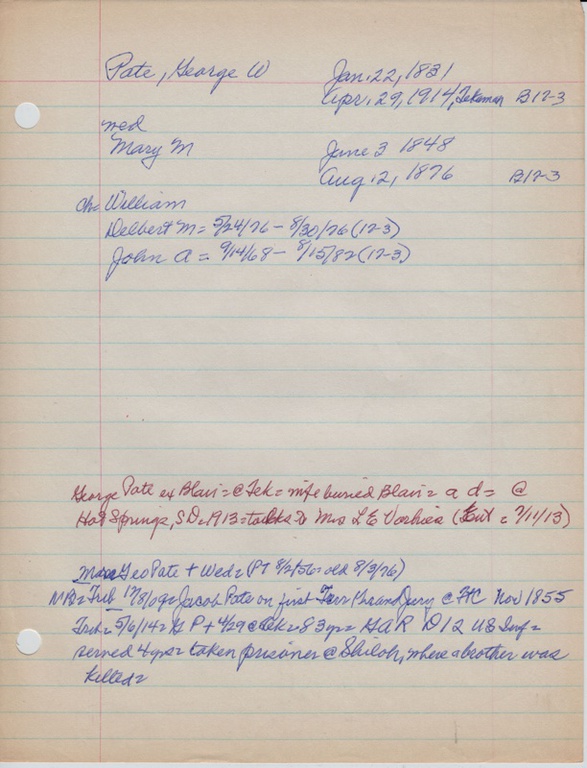 Pate, George W Jan. 22, 1831
Apr. 29, 1914, Tekamah B12-3
wed
Mary M June 3 1848
Aug. 2, 1876 B12-3
ch= William
Delbert M = 5/24/76 - 8/30/76 (12-3)
John A = 9/14/68 - 8/15/82 (12-3)
George Pate ex Blair = @ Tek = wife buried Blair = a d = @
Hot Springs, S D = 1913 = talks to Mrs L E Vorhies 7/11/13)
Geo Pate + wed = (PT 8/2/56 = old 8/3/76)
Trib 12/8/09 = Jacob Pate on first Terr Jury @ FtC Nov 1855
Trib = 5/6/14 = G P + 4/29 @ Tek = 83 yrs = G A R D 12 US Inf =
served 4 yrs = taken prisoner @ Shiloh, where a brother was
killed =